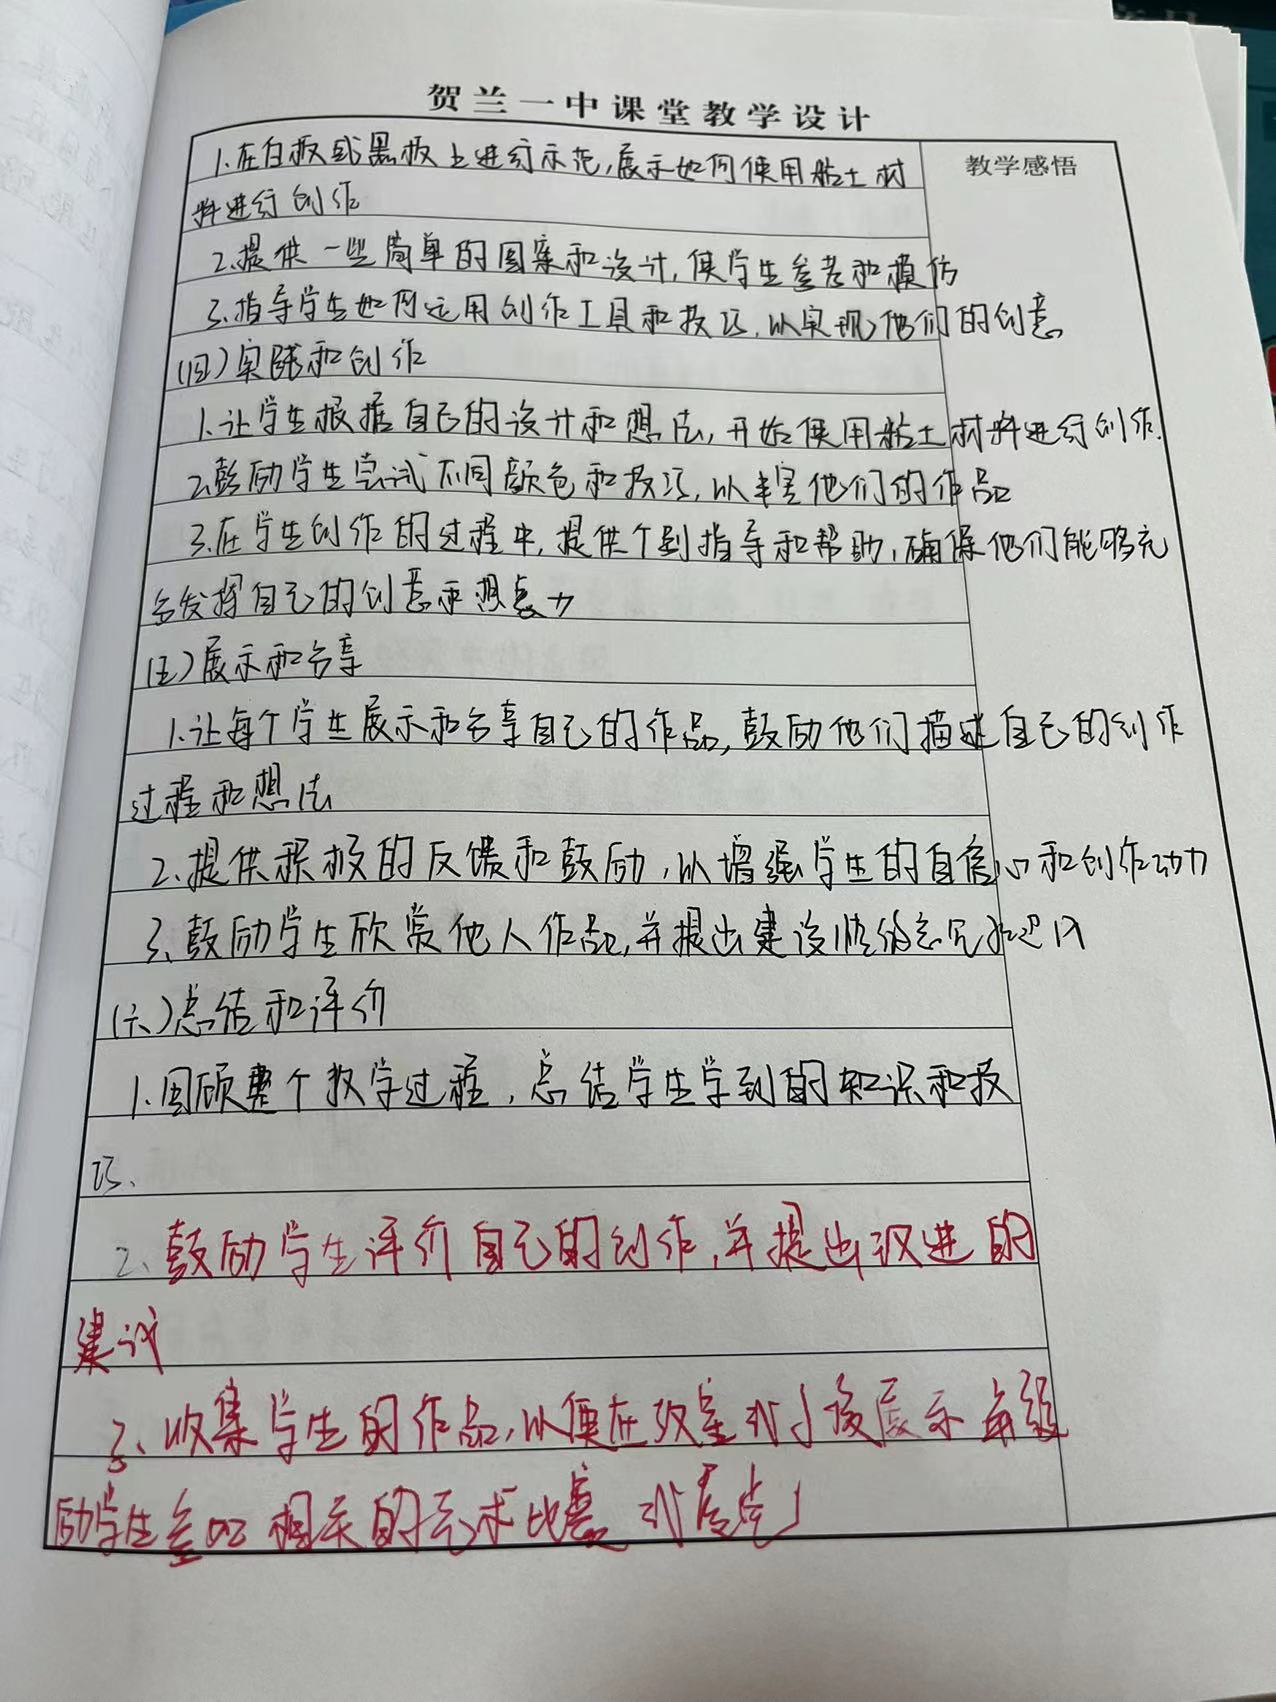 贺兰一中课堂教学设计
教学感悟
1.在白板或黑板上进行示范,展示如何使用粘土材
料进行创作
2.提供一些简单的图案和设计,供学生参考和模仿
3.指导学生如何运用创作工具和技巧,以实现他们的创意
(四)实践和创作
1.让学生根据自己的设计和想法,开始使用粘土材料进行创作.
2.鼓励学生尝试不同颜色和技巧,以丰富他们的作品
3.在学生创作的过程中,提供个别指导和帮助,确保他们能够充
分发挥自己的创意和想象力
(五)展示和分享
1.让每个学生展示和分享自己的作品,鼓励他们描述自己的创作
过程和想法
2.提供积极的反馈和鼓励,以增强学生的自信心和创作动力
3、鼓励学生欣赏他人作品,并提出建设性的意见和建议
(六)总结和评价
1.回顾整个教学过程,总结学生学到的知识和技
巧、
2、鼓励学生评价自己的创作,并提出改进的
建议
3、收集学生的作品,以便在教室或学校展示并鼓
励学生参加相关的艺术比赛或